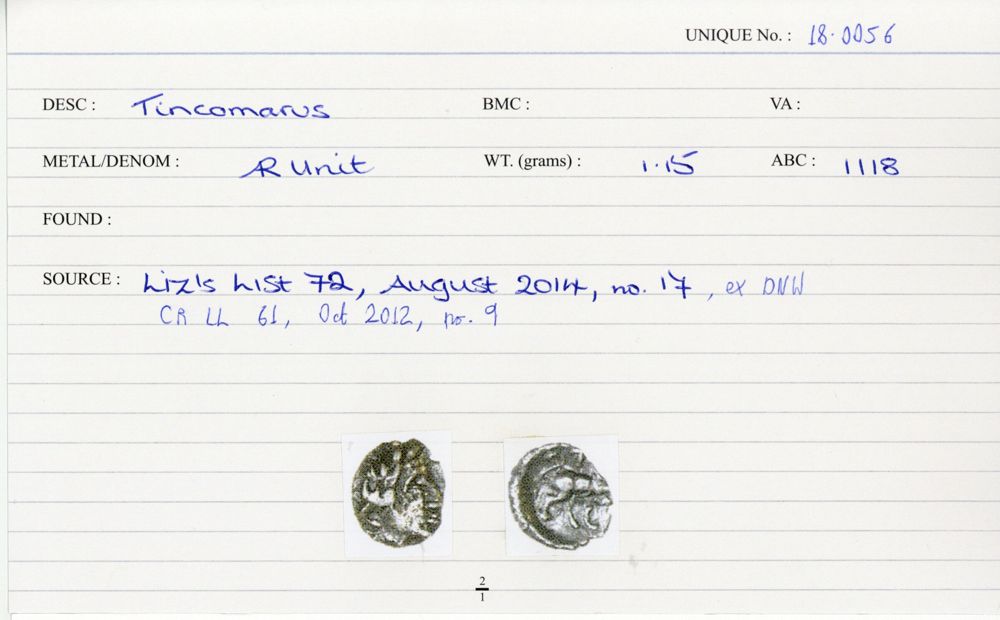 UNIQUE No. : 18.0056
DESC : Tincomarus BMC : VA :
METAL/DENOM : AR Unit WT. (grams) : 1.15 ABC : 1118
FOUND :
SOURCE : Liz's List 72, August 2014, no. 17, ex DNW
CR LL 61, Oct 2012, no. 9
2
1